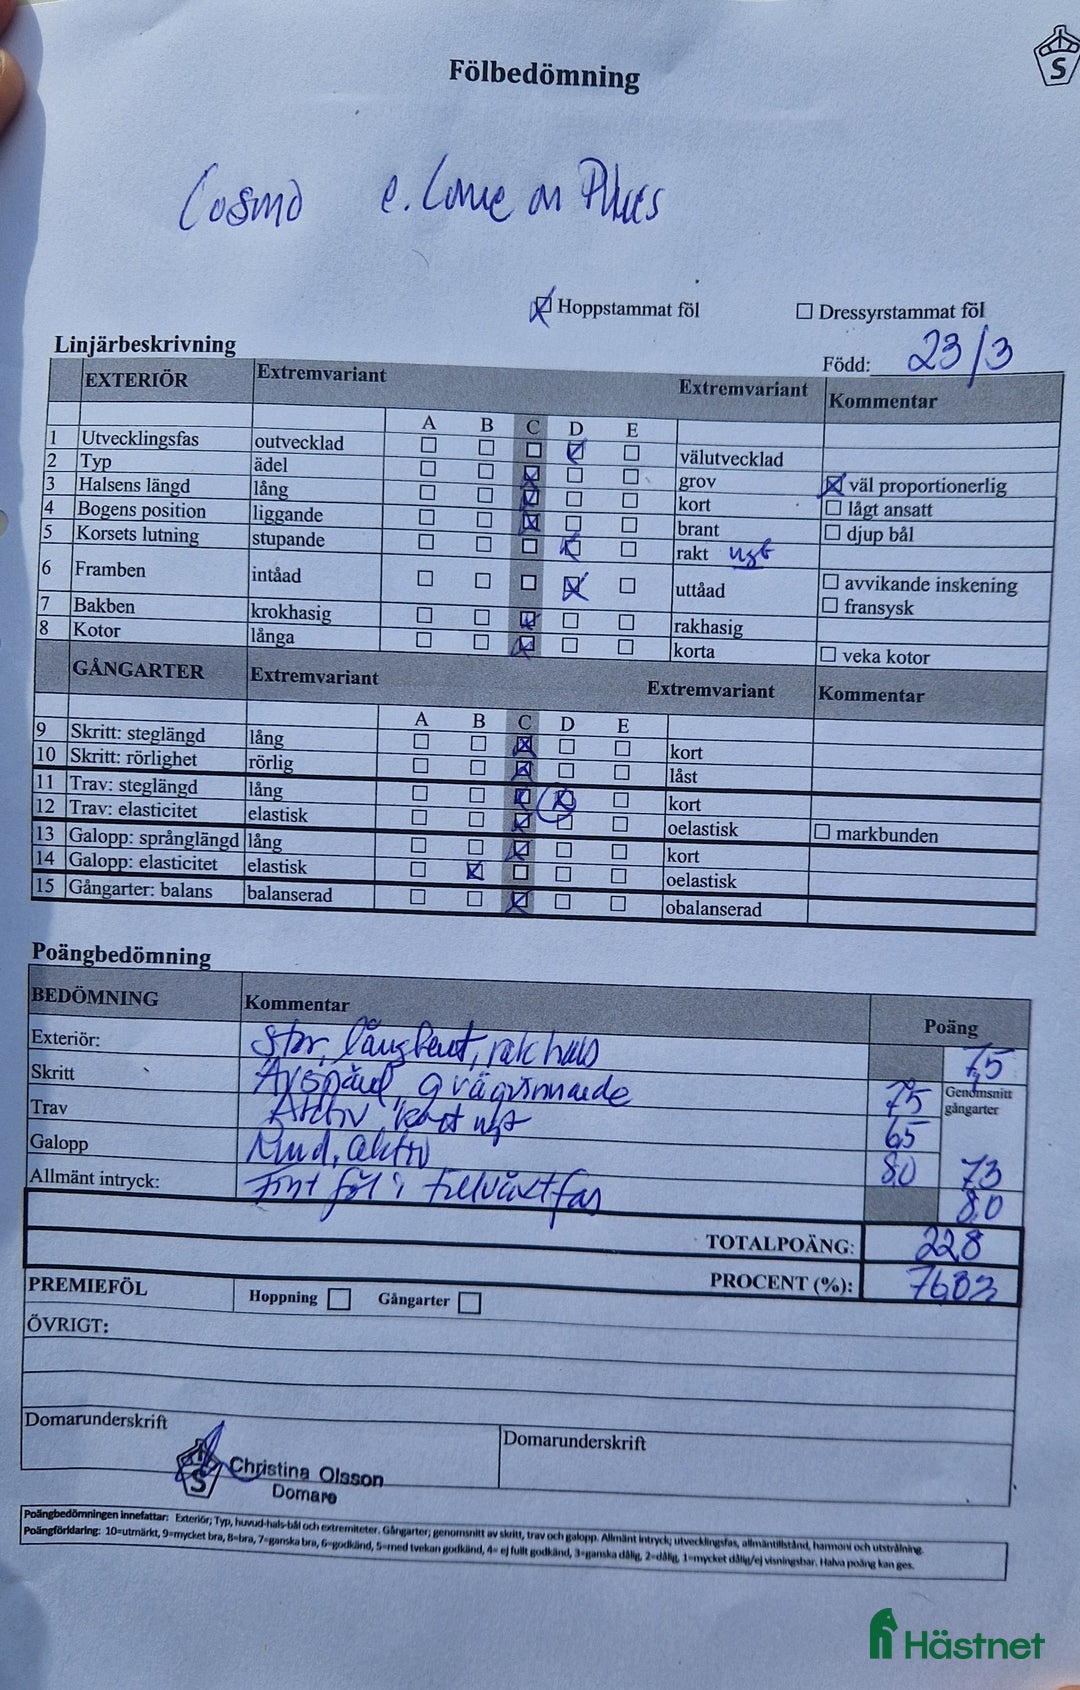 S
Fölbedömning
Cosmo e. Come on
☒ Hoppstammat föl ☐ Dressyrstammat föl
Linjärbeskrivning
Född: 23/3
EXTERIÖR Extremvariant Extremvariant Kommentar
A B C D E
1 Utvecklingsfas outvecklad ☐ ☐ ☐ ☒ ☐ välutvecklad
2 Typ ädel ☐ ☐ ☒ ☐ ☐ grov ☒ väl proportionerlig
3 Halsens längd lång ☐ ☐ ☒ ☐ ☐ kort ☐ lågt ansatt
4 Bogens position liggande ☐ ☐ ☒ ☐ ☐ brant ☐ djup bål
5 Korsets lutning stupande ☐ ☐ ☐ ☒ ☐ rakt ngt
6 Framben intåad ☐ ☐ ☐ ☒ ☐ uttåad ☐ avvikande inskening
☐ fransysk
7 Bakben krokhasig ☐ ☐ ☒ ☐ ☐ rakhasig
8 Kotor långa ☐ ☐ ☒ ☐ ☐ korta ☐ veka kotor
GÅNGARTER Extremvariant Extremvariant Kommentar
A B C D E
9 Skritt: steglängd lång ☐ ☐ ☒ ☐ ☐ kort
10 Skritt: rörlighet rörlig ☐ ☐ ☒ ☐ ☐ låst
11 Trav: steglängd lång ☐ ☐ ☒ ☒ ☐ kort
12 Trav: elasticitet elastisk ☐ ☐ ☒ ☐ ☐ oelastisk ☐ markbunden
13 Galopp: språnglängd lång ☐ ☐ ☒ ☐ ☐ kort
14 Galopp: elasticitet elastisk ☐ ☒ ☐ ☐ ☐ oelastisk
15 Gångarter: balans balanserad ☐ ☐ ☒ ☐ ☐ obalanserad
Poängbedömning
BEDÖMNING Kommentar Poäng
Exteriör: Stor, långbent, rak hals 7,5
Skritt Avspänd, g vägvinnande 75 Genomsnitt gångarter
Trav Aktiv, kort ngt 65
Galopp Rund, aktiv 80 73
Allmänt intryck: Fint föl i tillväxtfas 80
TOTALPOÄNG: 228
PROCENT (%): 7603
PREMIEFÖL Hoppning ☐ Gångarter ☐
ÖVRIGT:
Domarunderskrift Domarunderskrift
S Christina Olsson
Domare
Poängbedömningen innefattar: Exteriör; Typ, huvud-hals-bål och extremiteter. Gångarter; genomsnitt av skritt, trav och galopp. Allmänt intryck; utvecklingsfas, allmäntillstånd, harmoni och utstrålning.
Poängförklaring: 10=utmärkt, 9=mycket bra, 8=bra, 7=ganska bra, 6=godkänd, 5=med tvekan godkänd, 4= ej fullt godkänd, 3=ganska dålig, 2=dålig, 1=mycket dålig/ej visningsbar. Halva poäng kan ges.
Hästnet